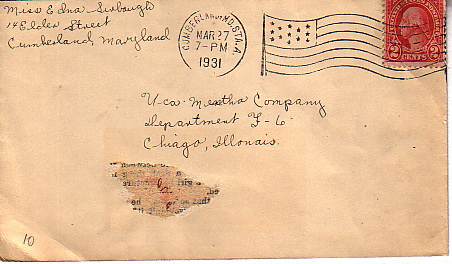 Miss Edna Sirbaugh
14 Elder Street
Cumberland, Maryland
CUMBERLAND, MD. STA. A
MAR 27
7-PM
1931
2 CENTS 2
U-ca-Mentha Company
Department F-6
Chiago, Illonais.
10